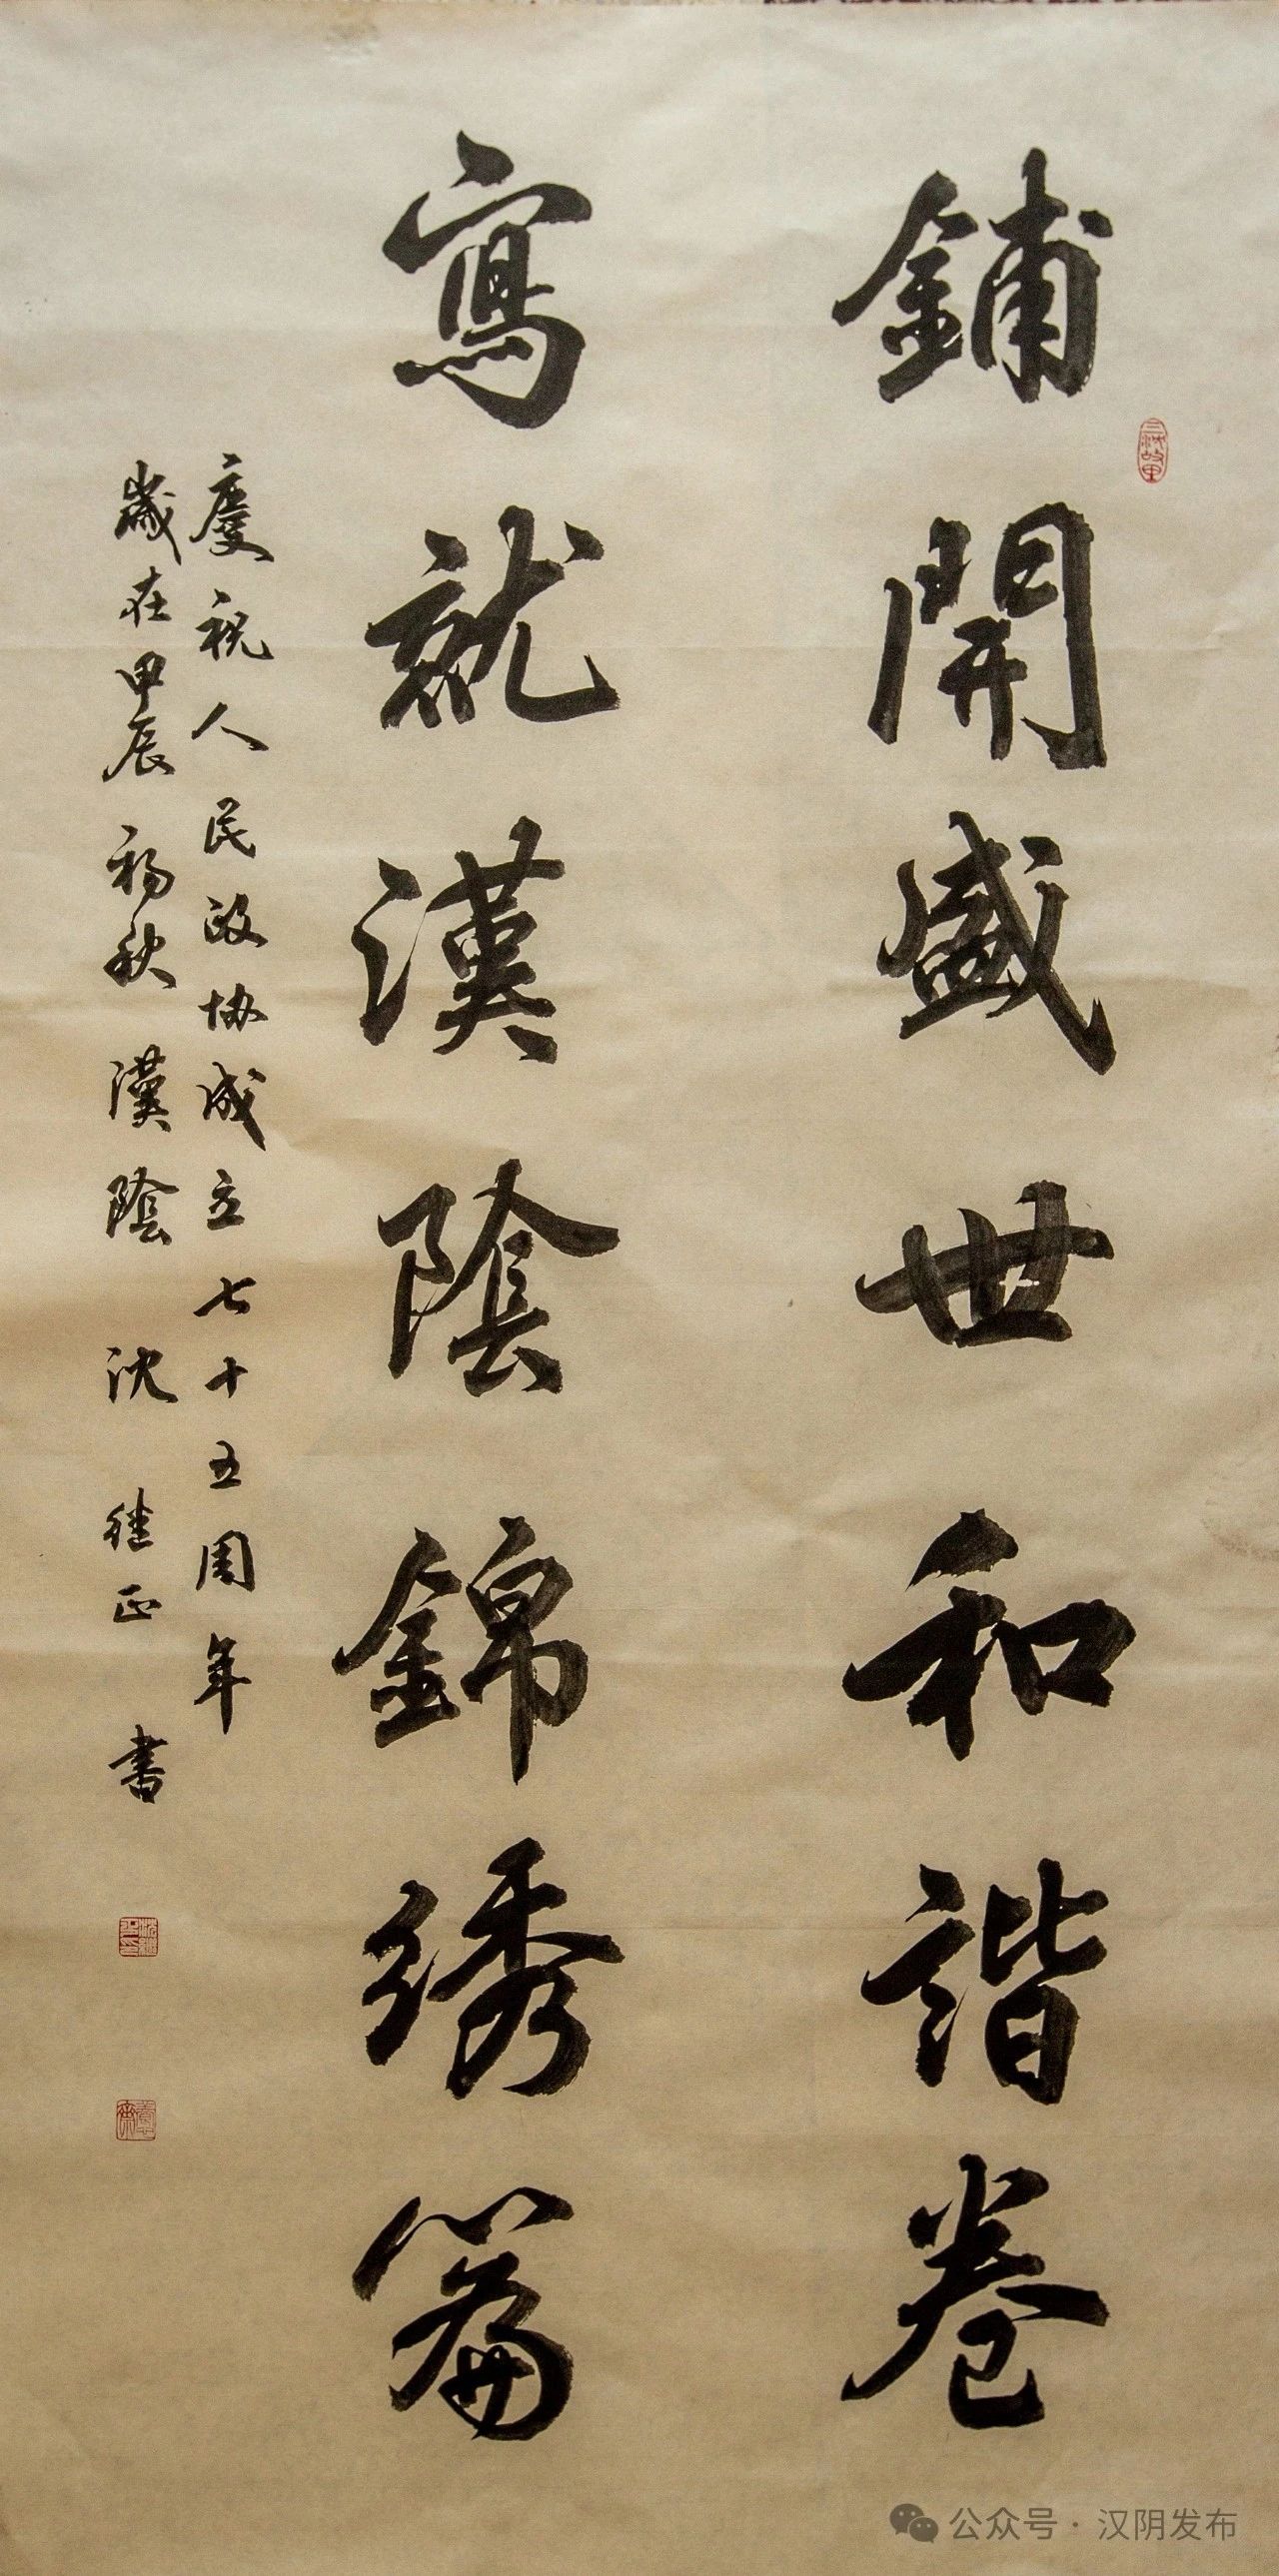 鋪開盛世和諧卷
寫就漢陰錦绣篇
慶祝人民政协成立七十五周年
歲在甲辰杨秋漢陰沈继正書
三沈故里
公众号·汉阴发布